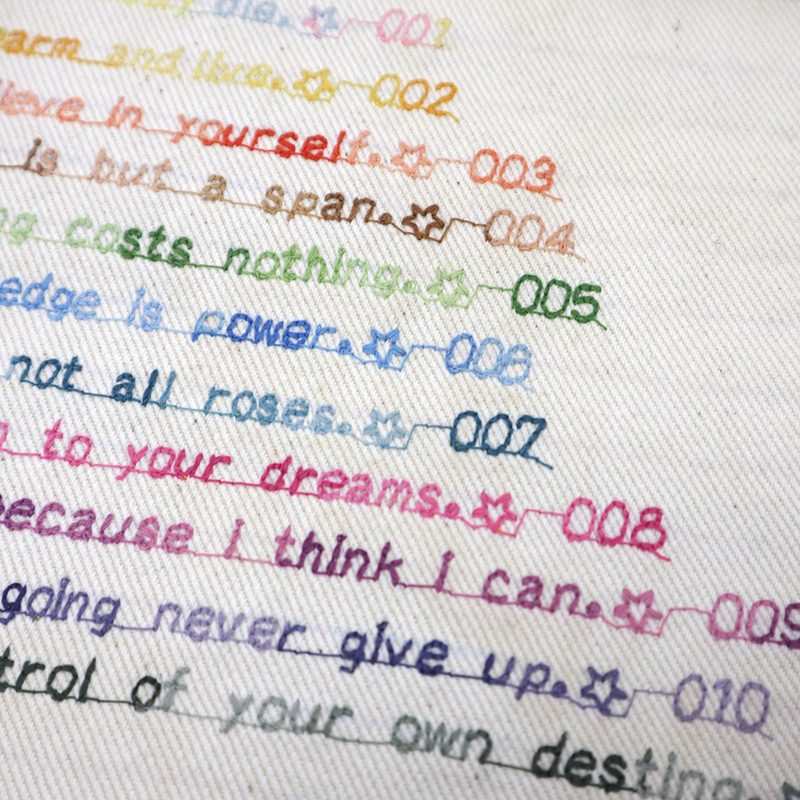 die.☆001
arm and live.☆002
lieve in yourself.☆003
is but a span.☆004
ng costs nothing.☆005
edge is power.☆006
not all roses.☆007
to your dreams.☆008
because i think i can.☆009
going never give up.☆010
trol of your own desting.